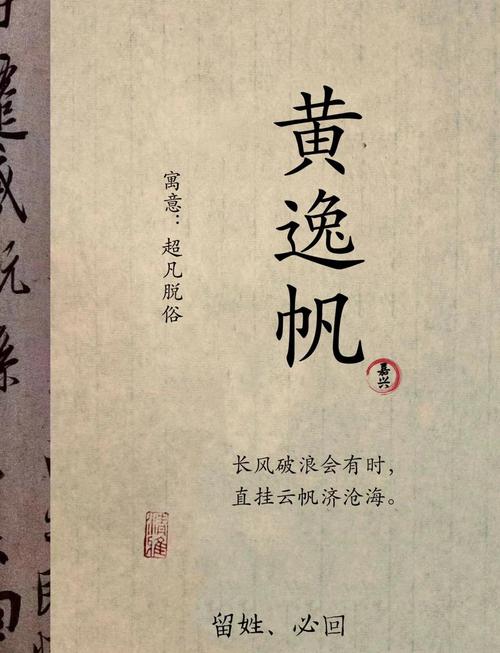 黄逸帆
寓意：超凡脱俗
嘉兴
长风破浪会有时，
直挂云帆济沧海。
清雅
留姓、必回